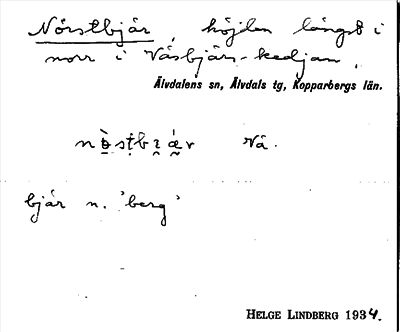 Nörstbjär, höjden längst i
norr i Våsbjärs-kedjan.
Älvdalens sn, Älvdals tg, Kopparbergs län.
Vå.
bjär n. 'berg'
HELGE LINDBERG 1934.